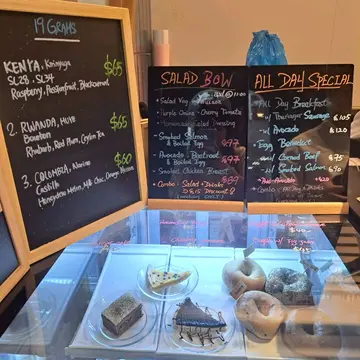 19 GRAMS
KENYA, Karinyaga $65
SL28 · SL34
Raspberry, Passionfruit, Blackcurrant
2. RWANDA, Huye $65
Bourbon
Rhubarb, Red Plum, Ceylon Tea
3. COLOMBIA, Narino $60
Castillo
Honeydew Melon, Milk Choc, Orange Blossom
SALAD BOWL
Purple Onion - Cherry Tomato
Smoked Salmon
& Boiled Egg $97
Avocado Beetroot
& Boiled Egg $97
Smoked Chicken Breast
Combo: Salad + Drinks
$15 Discount
ALL DAY SPECIAL
All Day Breakfast
w/ Thuringer Sausage $105
w/ Avocado $120
Egg Benedict
w/ Corned Beef $75
w/ Smoked Salmon $90
w/ Avocado $20